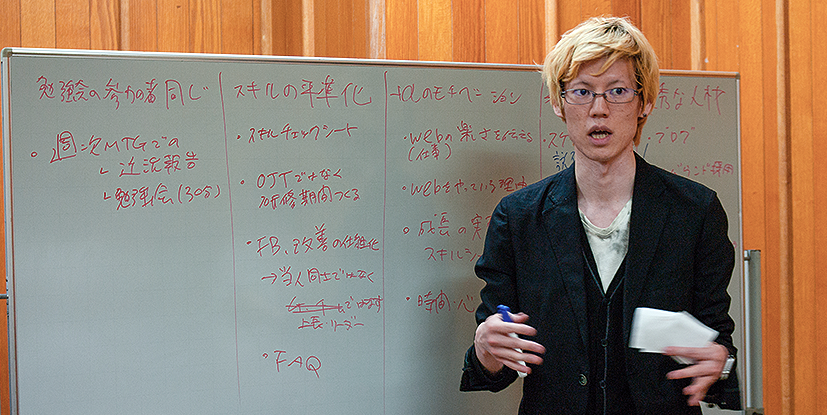 勉強会の参加者同じ
・週次MTGでの
↳ 近況報告
↳ 勉強会(30分)
スキルの平準化
・スキルチェックシート
・OJTではなく
研修期間つくる
・FB、改善の仕組化
→当人同士ではなく
上長、リーダー
・FAQ
のモチベーション
・webの楽さを伝える
(仕事)
・webをやっている理由
・成長の実
スキルシ
・時間・心
秀な人材
・スケ
・ブログ